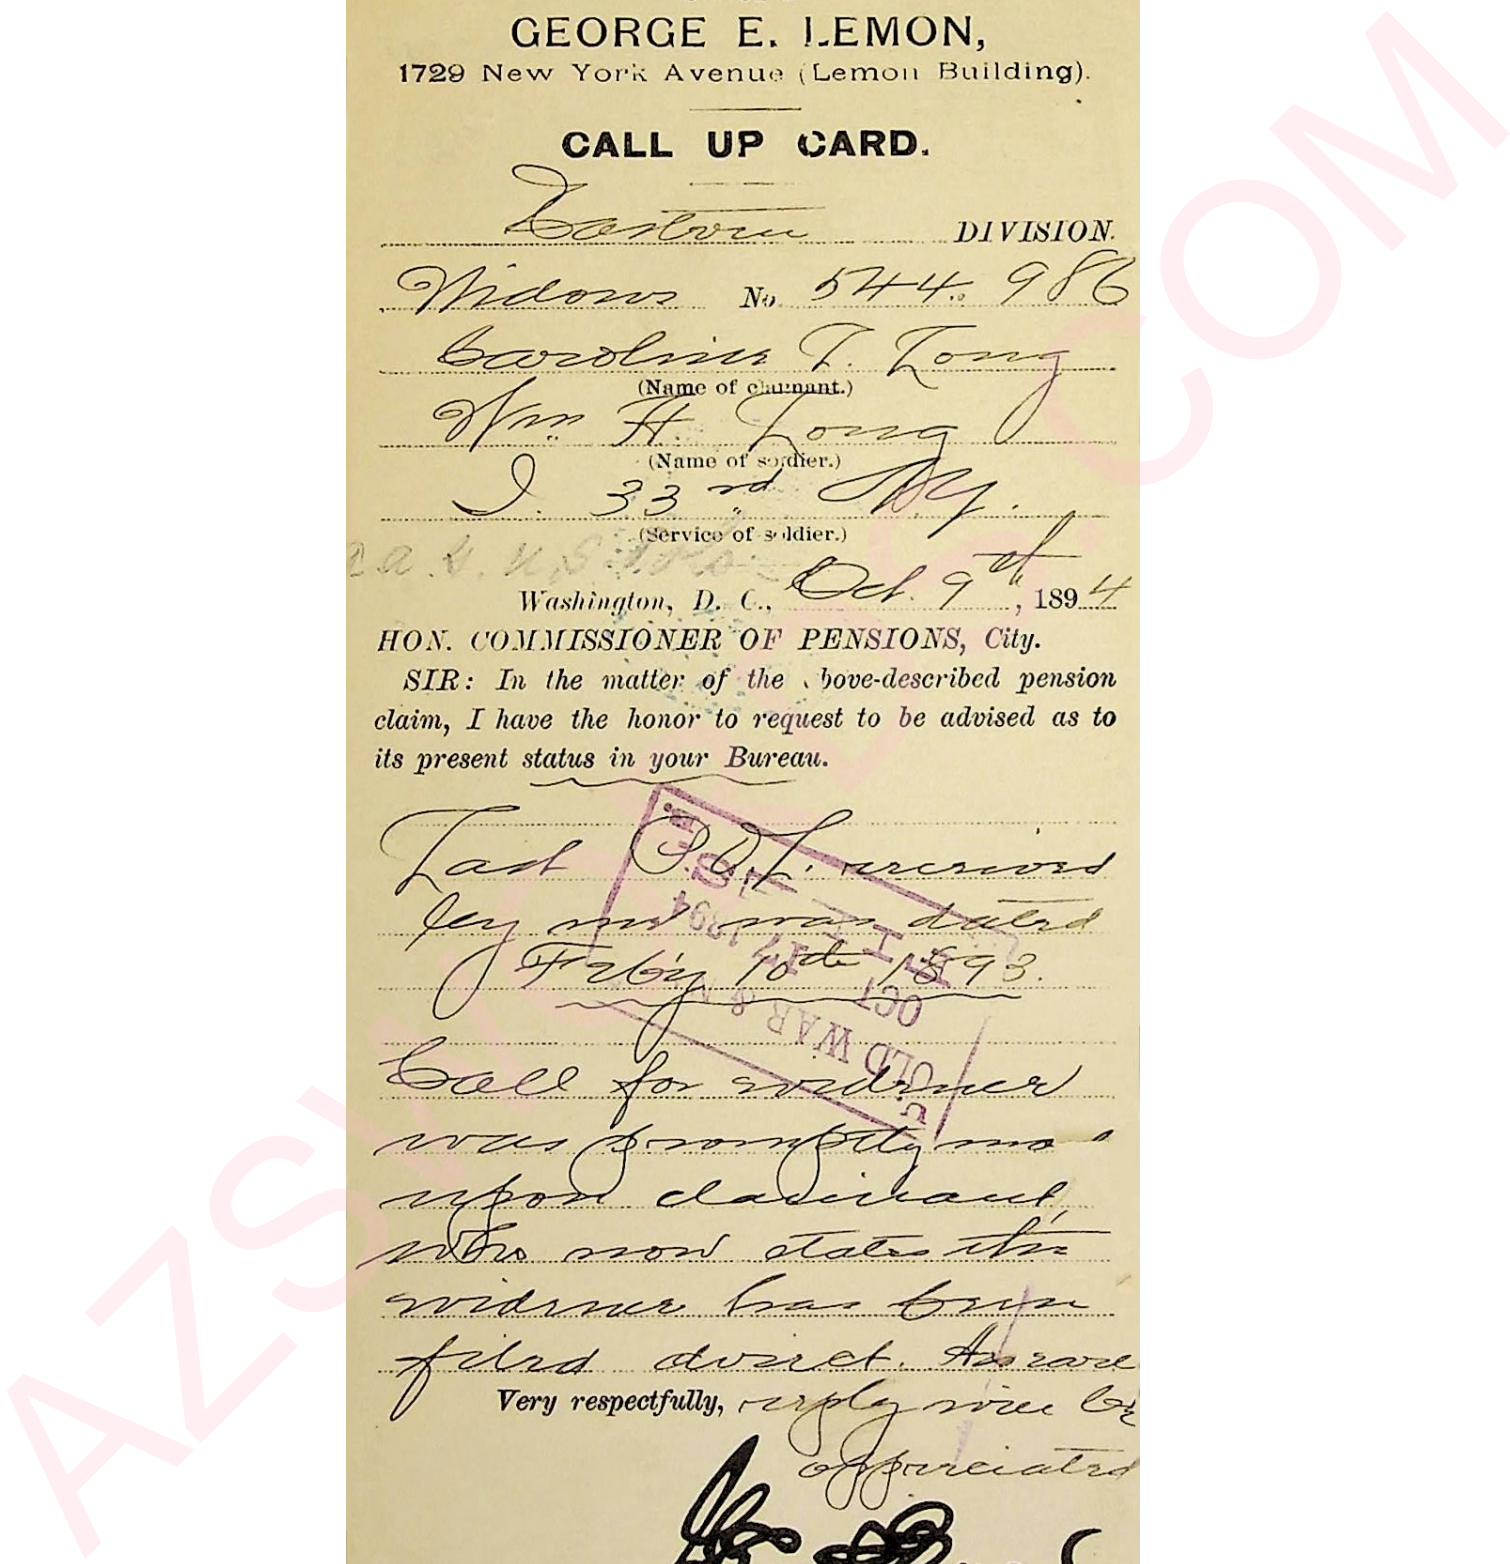 GEORGE E. LEMON,
1729 New York Avenue (Lemon Building).
CALL UP CARD.
Eastern DIVISION.
Widows No. 544.986
Caroline T. Long
(Name of claimant.)
Wm. H. Long
(Name of soldier.)
I. 33rd N.Y.
(Service of soldier.)
Washington, D. C., Oct. 9th, 1894
HON. COMMISSIONER OF PENSIONS, City.
SIR: In the matter of the above-described pension
claim, I have the honor to request to be advised as to
its present status in your Bureau.
Last P.O.L. received
by me was dated
Feby 10th 1893.
Call for evidence
was promptly
upon claimant,
who now states the
evidence has been
filed direct. An
Very respectfully, reply will be
appreciated
OCT 17 1894
OLD WAR &
AZSWORDS.COM